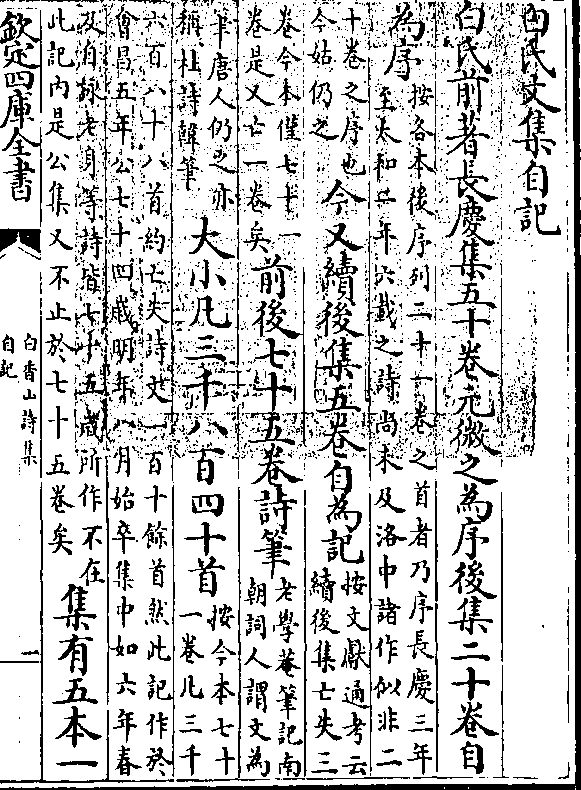 白氏文集自記
白氏前著長慶集五十卷元微之為序後集二十卷自
為序
按各本後序列二十一卷之首者乃序長慶三年
至太和二年六載之詩尚未及洛中諸作似非二
十卷之序也
今姑仍之
今又續後集五卷自為記
按文獻通考云
續後集亡失三
卷今本僅七十一
卷是又亡一卷矣
前後七十五卷詩筆
老學菴筆記南
朝詞人謂文為
筆唐人仍之亦
稱杜詩韓筆
大小凡三千八百四十首
按今本七十
一卷凡三千
六百八十八首約亡失詩文一百十餘首然此記作於
會昌五年公七十四歲明年八月始卒集中如六年春
及自詠老身等詩皆七十五歲所作不在
此記內是公集又不止於七十五卷矣
集有五本一
欽定四庫全書
白香山詩集
自記
一